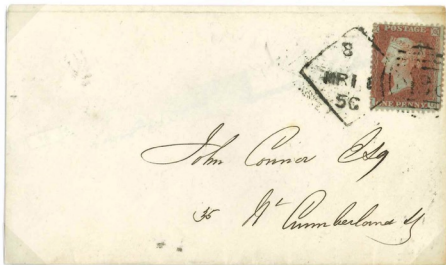 POSTAGE
ONE PENNY
8
MR 1
56
John Connor Esq
35 Nt Cumberland St